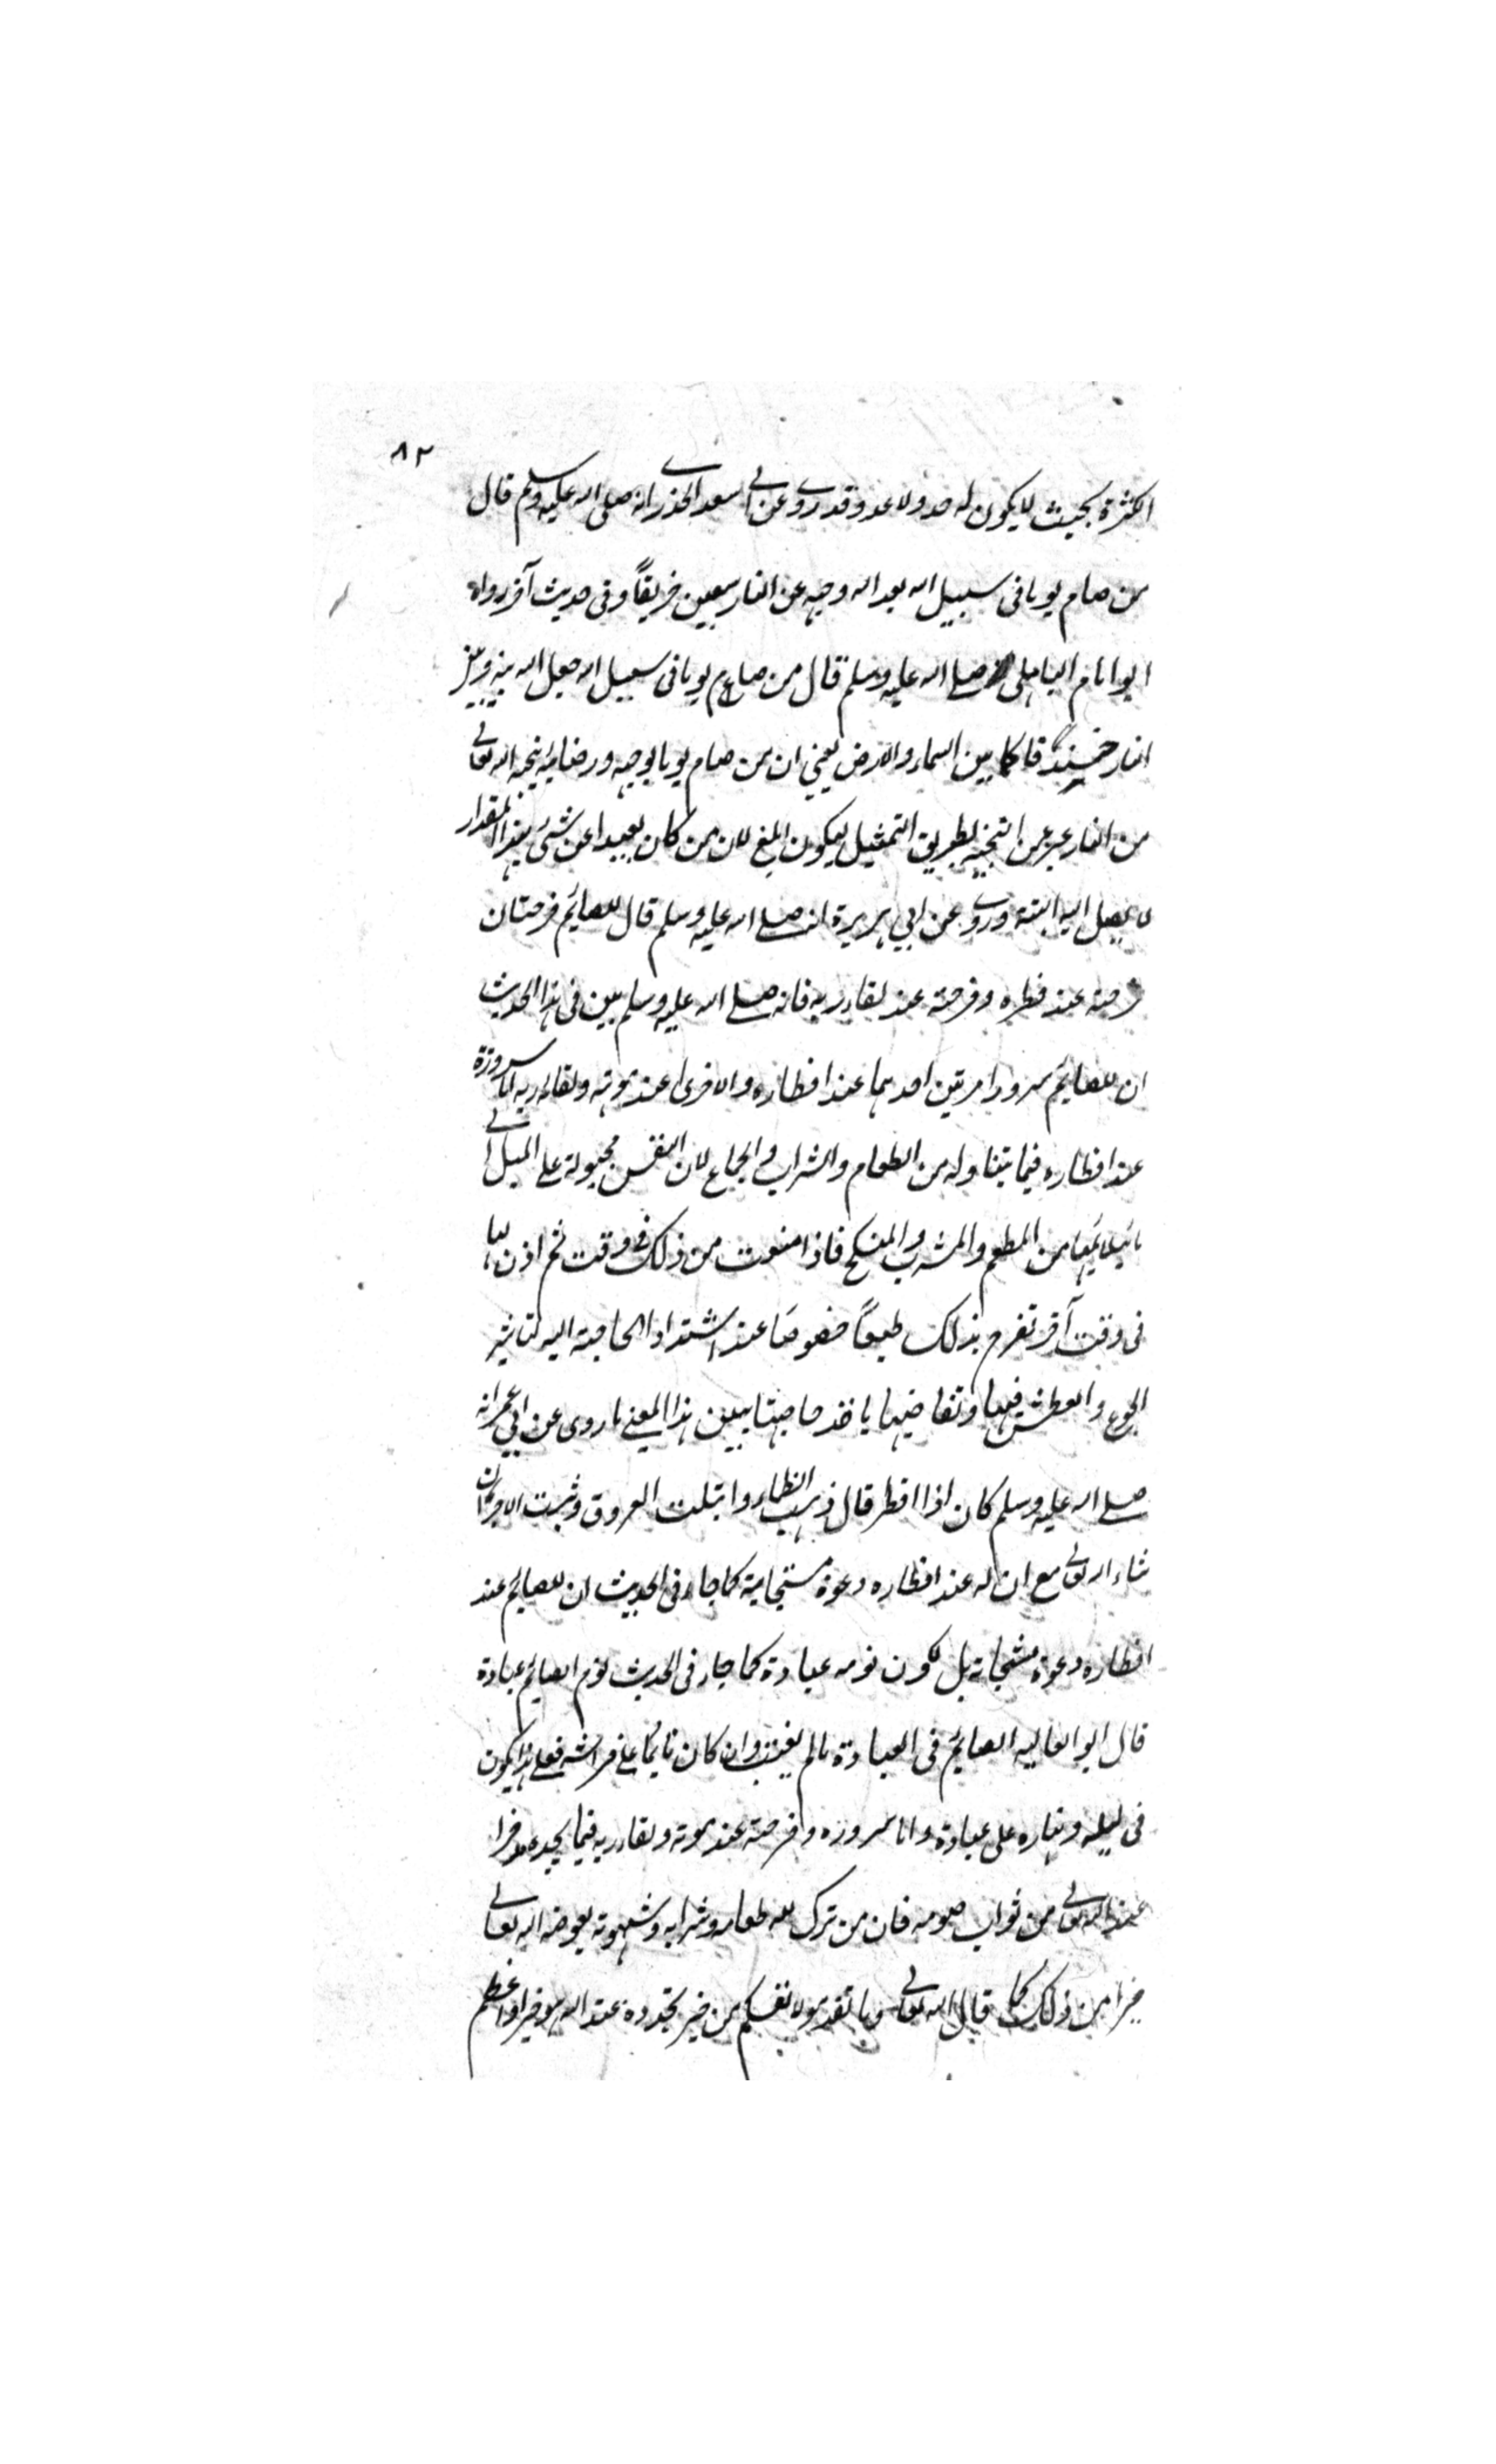 ٨٢
الكثرة بحيث لا يكون له حد ولا عد وقد روى عن ابى سعد الخذرى انه صلى الله عليه وسلم قال
من صام يوما فى سبيل الله بعد الله وجهه عن النار سبعين خريفاً وفى حديث آخر رواه
ابو امام الباهلى صلى الله عليه وسلم قال من صام يوما فى سبيل الله جعل الله بينه وبين
النار خندقا كما بين السماء والارض يعني ان من صام يوما لوجهه ورضائه ينجيه الله تعالى
من النار عبر عن التنجية بطريق التمثيل ليكون ابلغ لان من كان بعيدا عن شئ بهذا المقدار
لا يصل اليه البتة وروى عن ابي هريرة انه صلى الله عليه وسلم قال للصائم فرحتان
فرحة عند فطره وفرحة عند لقاء ربه فانه صلى الله عليه وسلم بين فى هذا الحديث
ان للصائم سرورا مرتين احدهما عند افطاره والاخرى عند موته ولقائه ربه اما سروره
عند افطاره فيما يتناوله من الطعام والشراب والجماع لان النفس مجبولة على الميل الى
ما يلائمها من المطعم والمشرب والمنكح فاذا منعت من ذلك فى وقت ثم اذن لها
فى وقت آخر تفرح بذلك طبعاً خصوصًا عند اشتداد الحاجة اليه لتاثير
الجوع والعطش فيها وتقاضيها باخذ حاجتها يبين هذا المعنى ما روى عن ابي عمر انه
صلى الله عليه وسلم كان اذا افطر قال ذهب الظماء وابتلت العروق وثبت الاجر ان
شاء الله تعالى مع ان له عند افطاره دعوة مستجابة كما جاء فى الحديث ان للصايم عند
افطاره دعوة مستجابة بل لكون نومه عبادة كما جاء فى الحديث نوم الصايم عبادة
قال ابو العاليه الصائم فى العبادة مالم يغتب وان كان نايما على فراشه فعلى هذا يكون
فى ليله ونهاره على عبادة واما سروره وفرحته عند موته ولقاء ربه فيما يجده مدخرا
عند الله تعالى من ثواب صومه فان من ترك لله طعامه وشرابه وشهوته يعوضه الله تعالى
خيرا من ذلك كما قال الله تعالى وما تقدموا لانفسكم من خير تجدوه عند الله هو خيرا واعظم